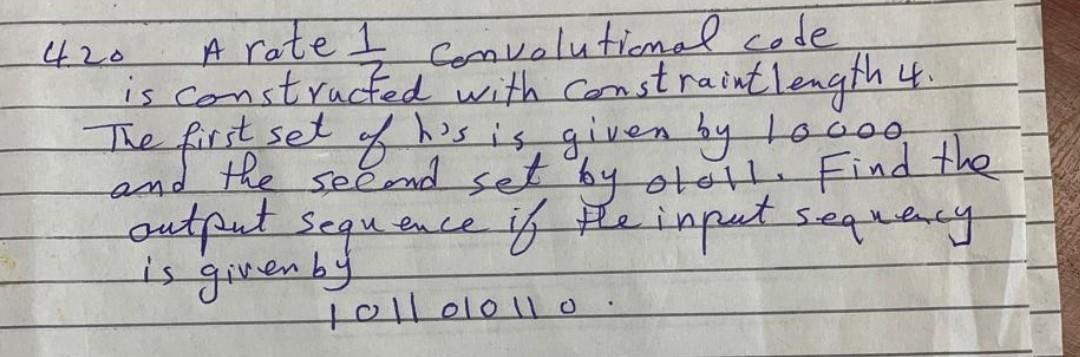 4.20 A rate 1/2 Convolutional code
is constructed with Constraint length 4.
The first set of h's is given by 10000
and the second set by 01011. Find the
output sequence if the input sequency
is given by
10110101110.